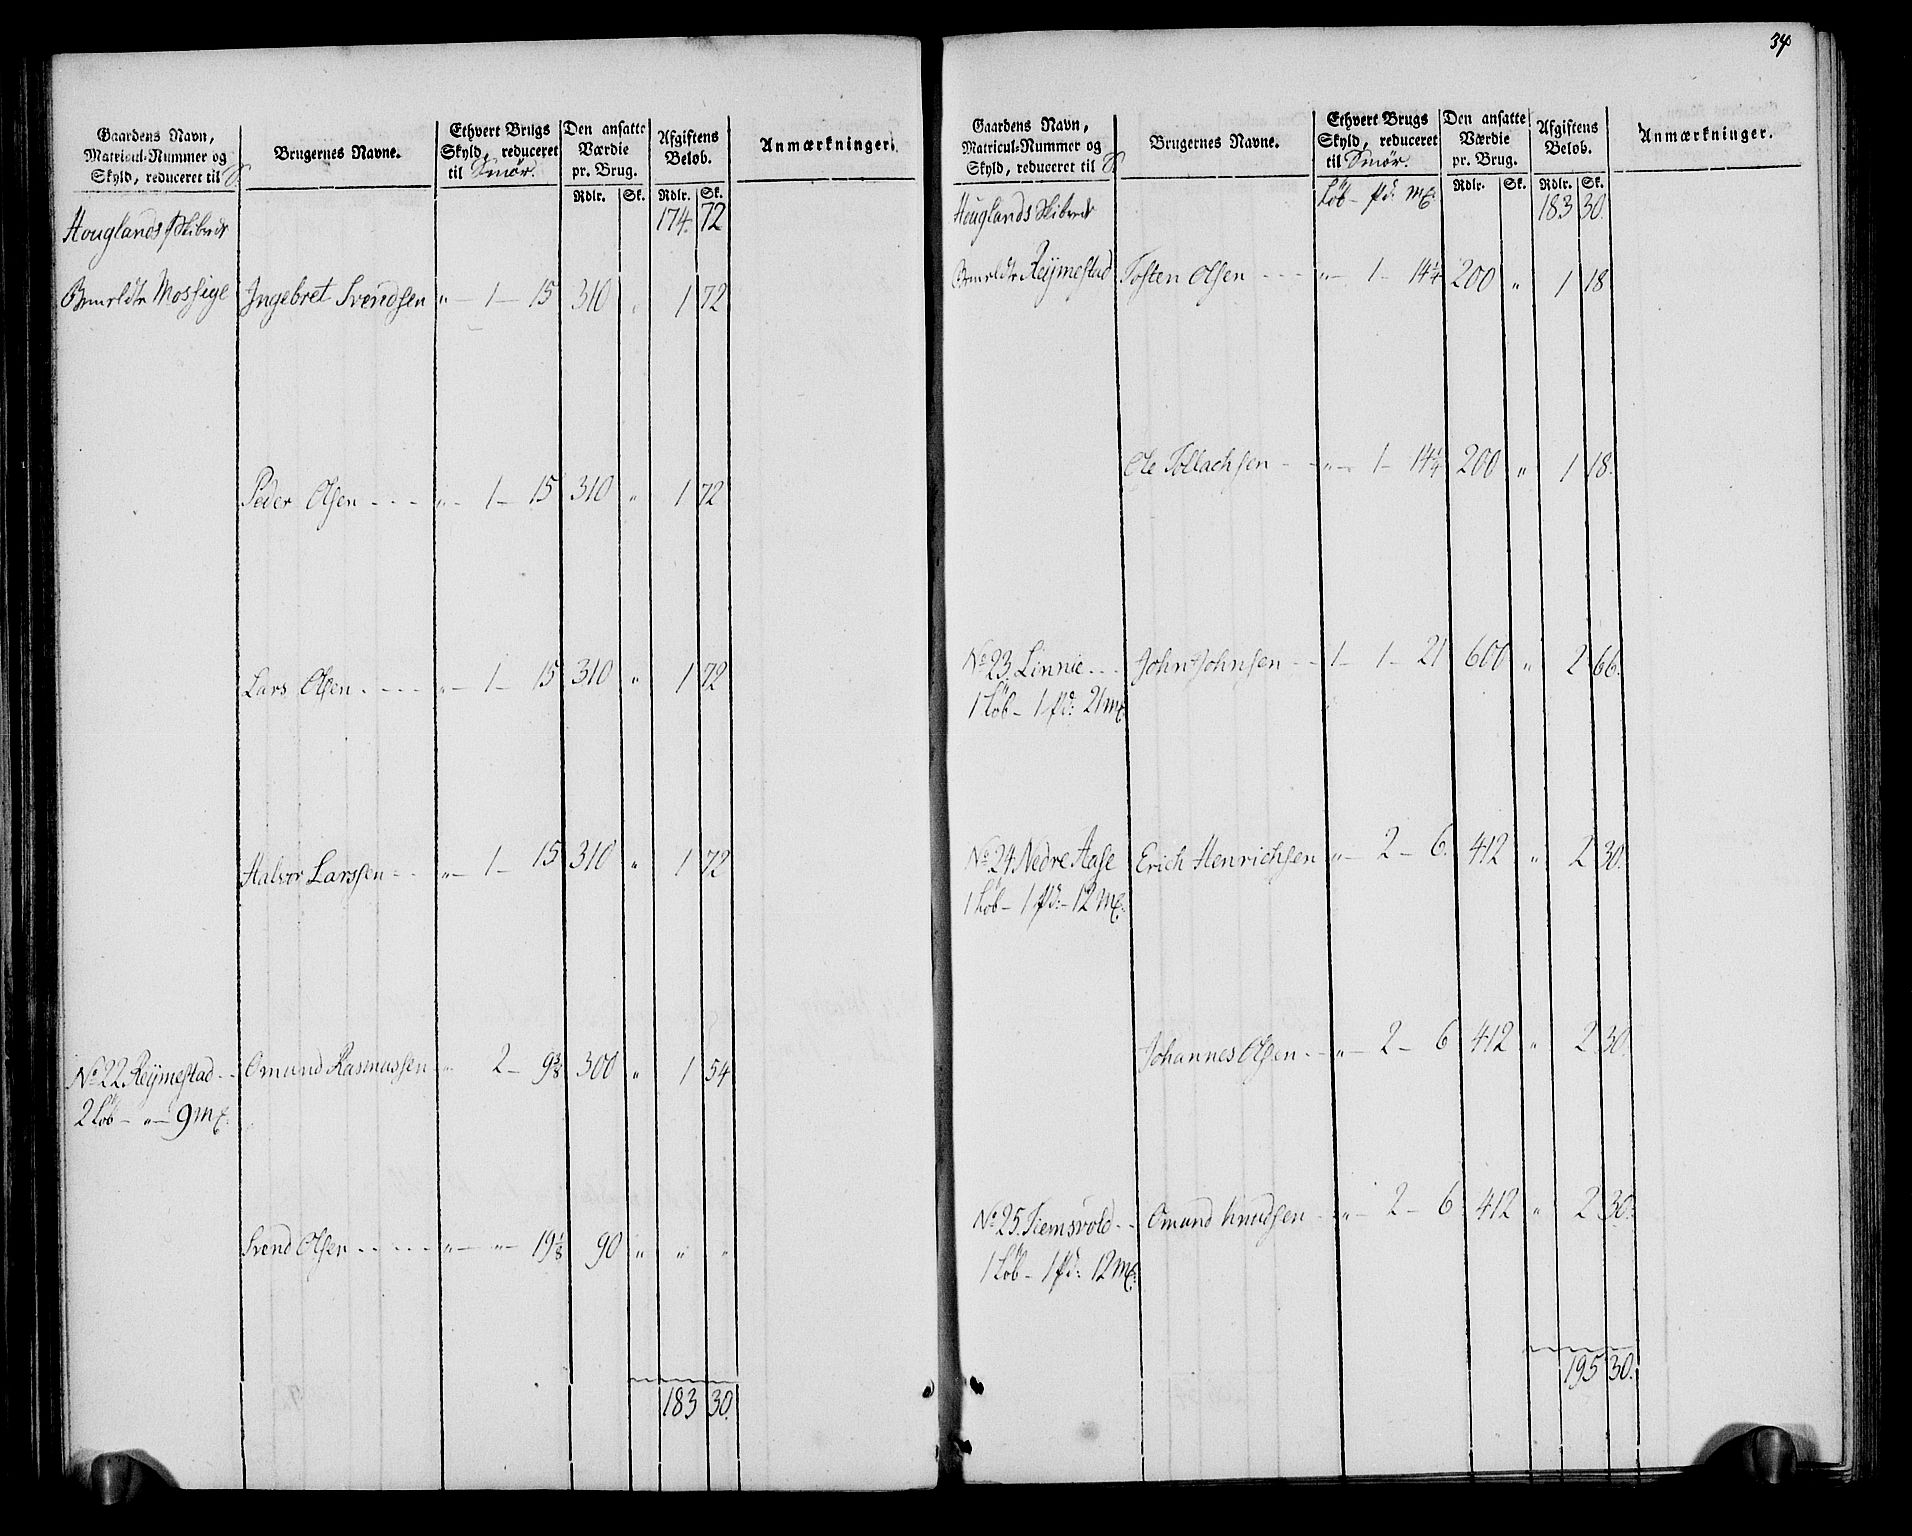 Gaardens Navn,
Matricul-Nummer og
Skyld, reduceret til S.
Brugernes Navne.
Ethvert Brugs
Skyld, reduceret
til Smør.
Den ansatte
Værdie
pr. Brug.
Rdlr. Sk.
Afgiftens
Beløb.
Rdlr. Sk.
Anmærkninger.
Houglands Skibredt 174. 72
Mossige Ingebret Svendsen " – 1 – 15 310 " 1 72
Peder Olsen " – 1 – 15 310 " 1 72
Lars Olsen " – 1 – 15 310 " 1 72
Halvor Larssen " – 1 – 15 310 " 1 72
No 22 Reijmestad Omund Rasmussen " 2 – 9 3/8 300 " 1 54
2 Løb – " – 9 mk:
Svend Olsen " – " – 19 1/8 90 " " "
183 30.
34
Gaardens Navn,
Matricul-Nummer og
Skyld, reduceret til S.
Brugernes Navne.
Ethvert Brugs
Skyld, reduceret
til Smør.
Løb – pd: mk:
Den ansatte
Værdie
pr. Brug.
Rdlr. Sk.
Afgiftens
Beløb.
Rdlr. Sk.
Anmærkninger.
Houglands Skibredt 183 30.
Reijmestad Tosten Olsen " – 1 – 14 1/4 200 " 1 18
Ole Tollachsen " – 1 – 14 1/4 200 " 1 18.
No 23. Linnie John Johnsen 1 – 1 – 21 600 " 2 66.
1 Løb – 1 pd: 21 mk:
No 24 Nedre Aase Erich Henrichsen " – 2 – 6. 412 " 2 30.
1 Løb – 1 pd: – 12 mk:
Johannes Olsen " – 2 – 6 412 " 2 30.
No 25. Tiemsvold Omund Knudsen " – 2 – 6 412 " 2 30.
1 Løb – 1 pd: 12 mk:
195 30.